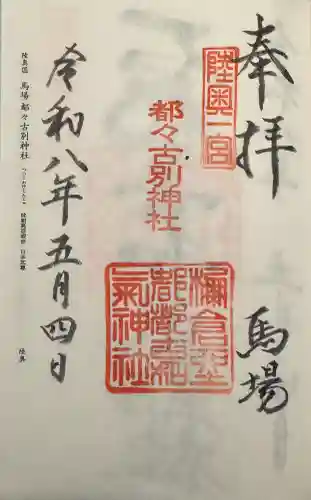 奉拝
馬場
陸奥一宮
都々古別神社
令和八年五月四日
陸奥国 馬場 都々古別神社
陸奥